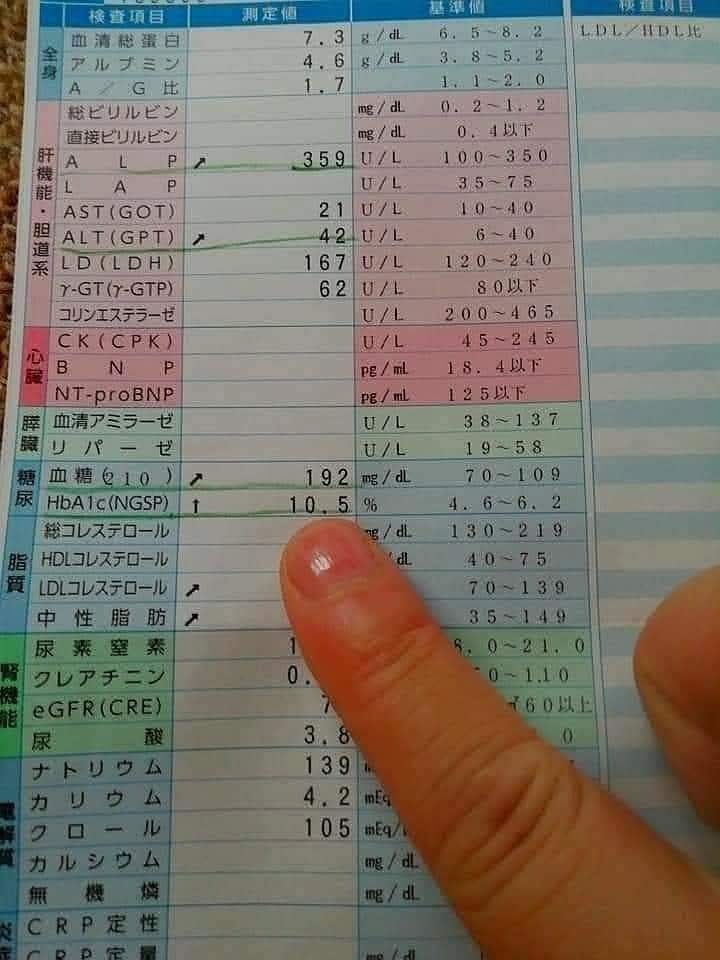 検査項目 測定値 基準値 検査項目
全身
血清総蛋白 7.3 g/dL 6.5~8.2 LDL/HDL比
アルブミン 4.6 g/dL 3.8~5.2
A/G比 1.7 1.1~2.0
肝機能・胆道系
総ビリルビン mg/dL 0.2~1.2
直接ビリルビン mg/dL 0.4以下
ALP ↗ 359 U/L 100~350
LAP U/L 35~75
AST(GOT) 21 U/L 10~40
ALT(GPT) ↗ 42 U/L 6~40
LD(LDH) 167 U/L 120~240
γ-GT(γ-GTP) 62 U/L 80以下
コリンエステラーゼ U/L 200~465
心臓
CK(CPK) U/L 45~245
BNP pg/mL 18.4以下
NT-proBNP pg/mL 125以下
膵臓
血清アミラーゼ U/L 38~137
リパーゼ U/L 19~58
糖尿
血糖(210) ↗ 192 mg/dL 70~109
HbA1c(NGSP) ↑ 10.5 % 4.6~6.2
脂質
総コレステロール mg/dL 130~219
HDLコレステロール /dL 40~75
LDLコレステロール ↗ 70~139
中性脂肪 ↗ 35~149
腎機能
尿素窒素 1 8.0~21.0
クレアチニン 0. 1.10
eGFR(CRE) 7 ㎡ 60以上
尿酸 3.8 0
電解質
ナトリウム 139
カリウム 4.2 mEq
クロール 105 mEq/
カルシウム mg/dL
無機燐 mg/dL
炎
CRP定性
CRP定量 mg/dL